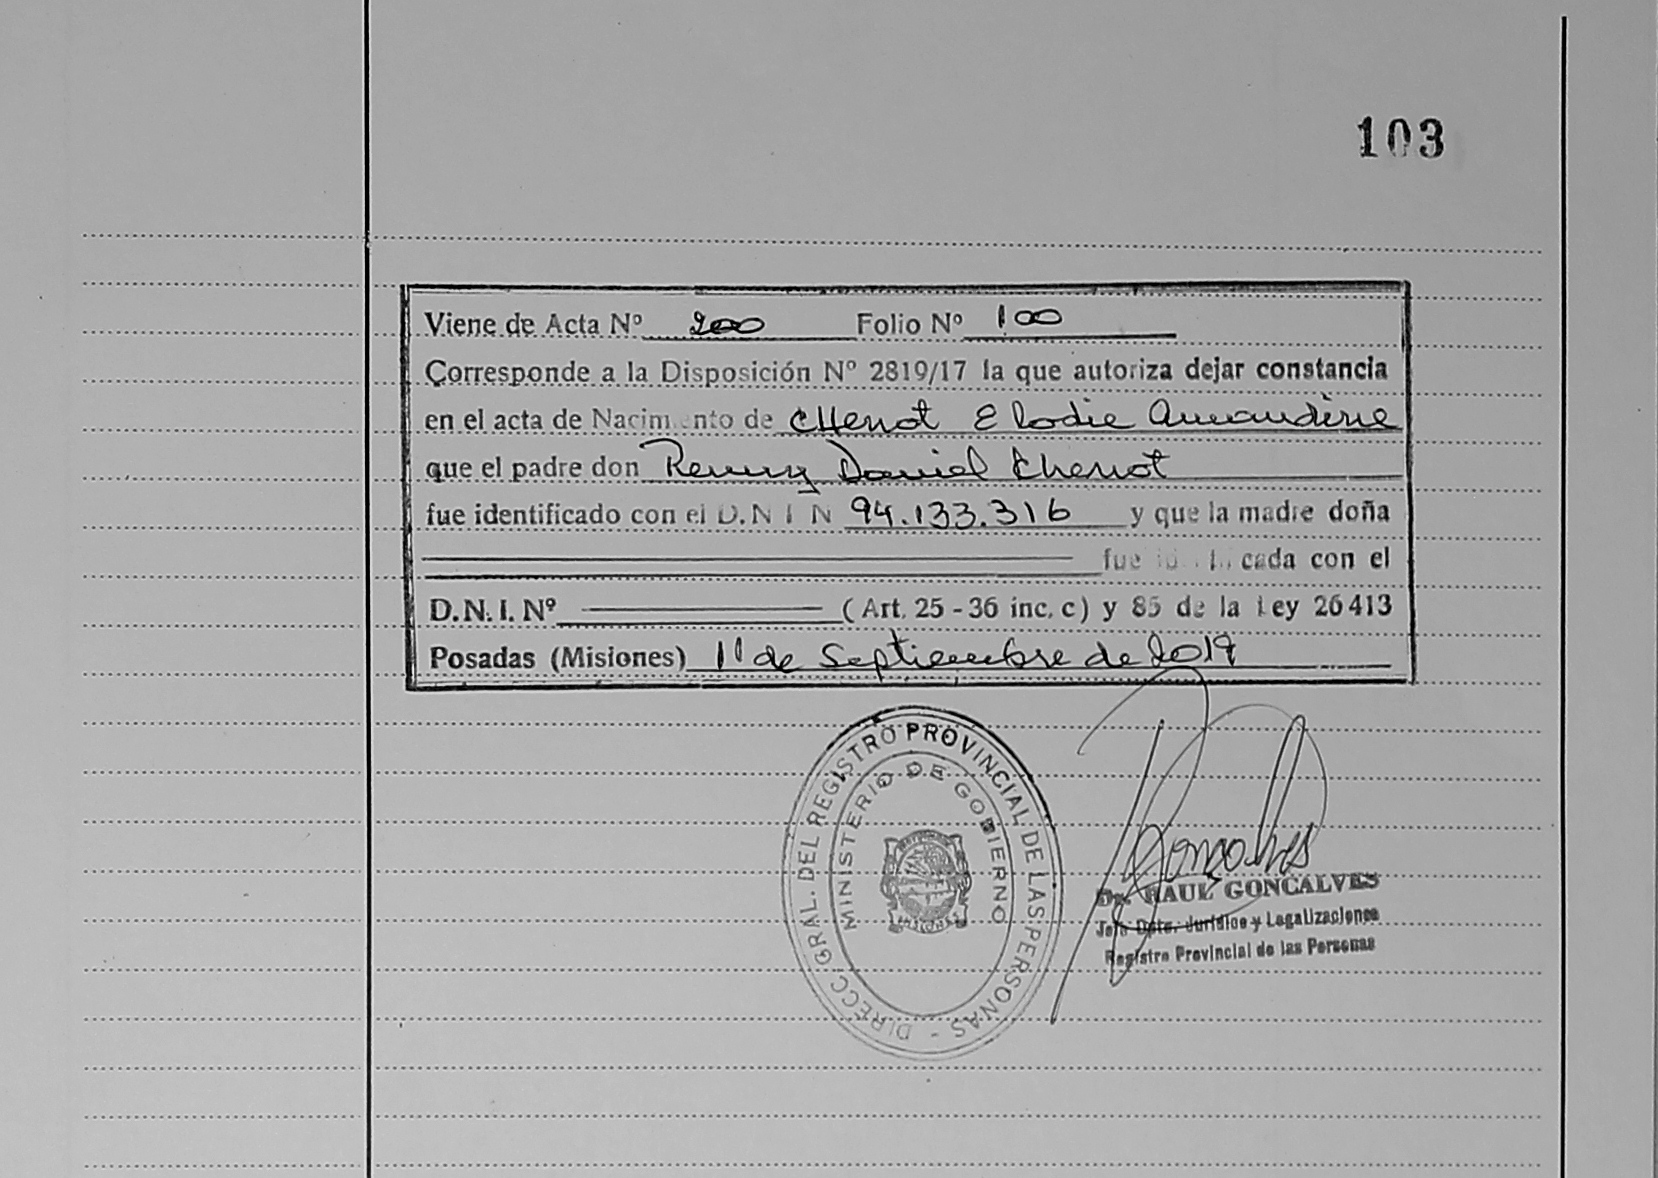 103
Viene de Acta Nº 200 Folio Nº 100
Corresponde a la Disposición Nº 2819/17 la que autoriza dejar constancia
en el acta de Nacimento de CHenot Elodie Amandine
que el padre don Remy Daniel Chenot
fue identificado con el D.N I N 94.133.316 y que la madre doña
fue cada con el
D.N.I. Nº ( Art. 25 - 36 inc. c ) y 85 de la Ley 26413
Posadas (Misiones) 1º de Septiembre de 2017
DIRECC. GRAL. DEL REGISTRO PROVINCIAL DE LAS PERSONAS -
MINISTERIO DE GOBIERNO
MISIONES
Goncalves
Dr. RAUL GONCALVES
Jefe Dpto. Jurídico y Legalizaciones
Registro Provincial de las Personas